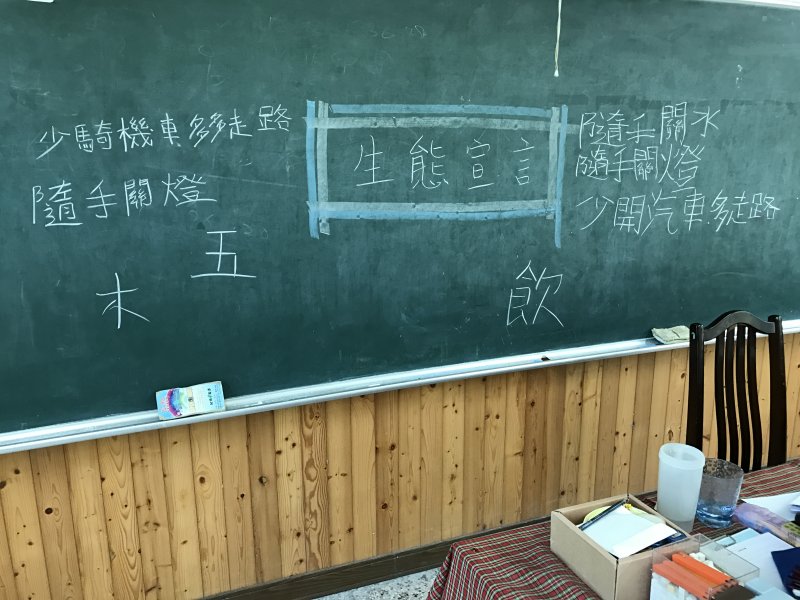 生態宣言
少騎機車多多走路
隨手關燈
五
木
隨手關水
隨手關燈
少開汽車多走路
飲